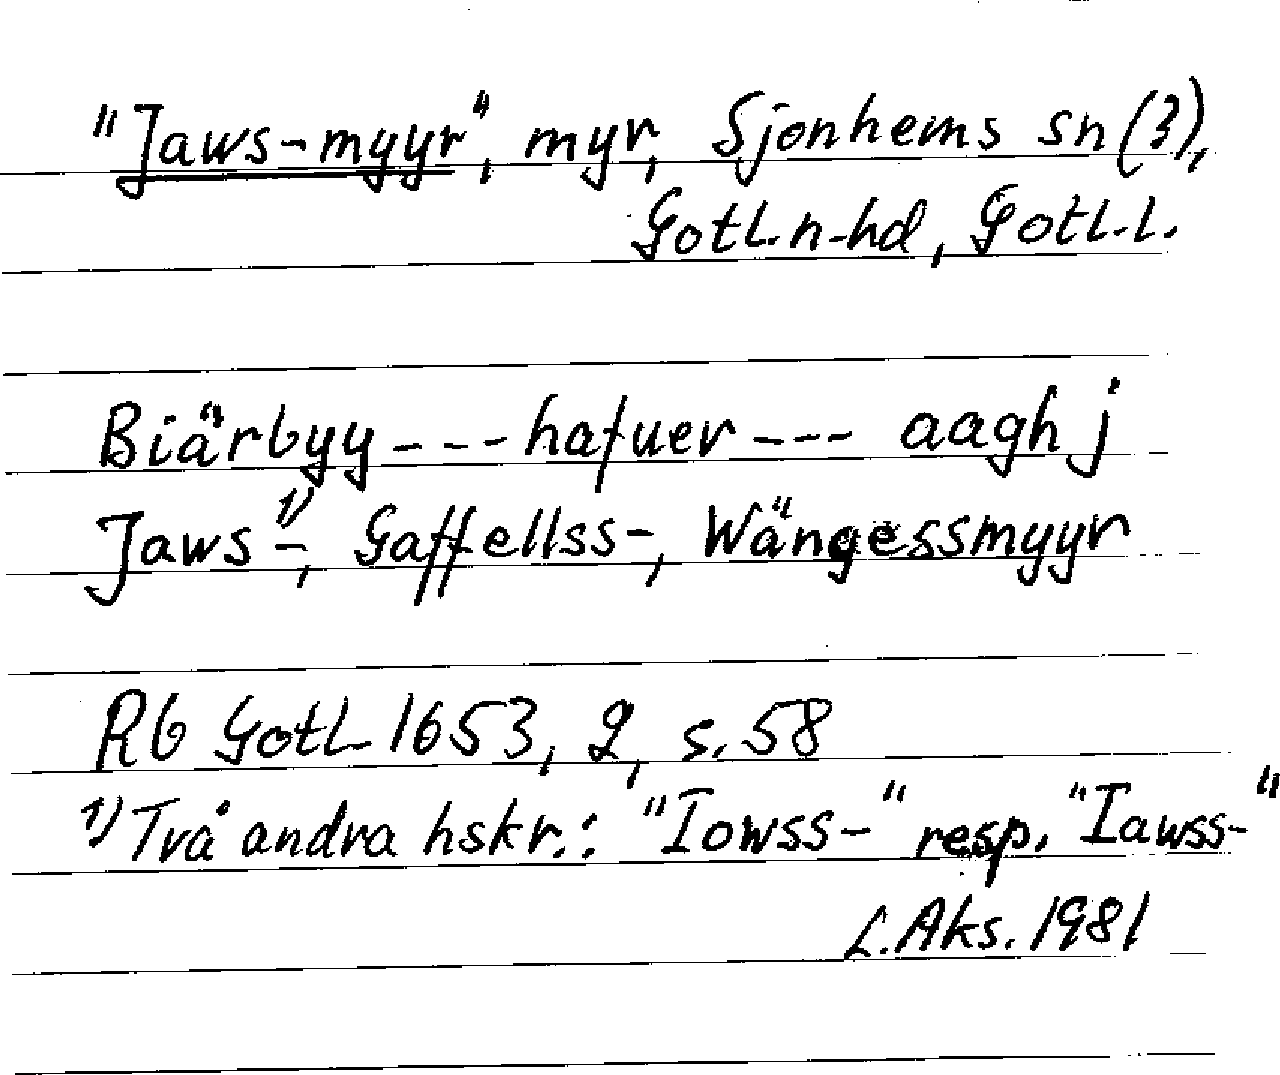 "Jaws-myyr", myr, Sjonhems sn (?),
Gotl. n-hd, Gotl. l.
Biärbyy --- hafuer --- aagh j
Jaws 1)-, Gaffellss-, Wängessmyyr
Rb Gotl 1653, 2, s. 58
1) Två andra hskr.: "Iowss-" resp. "Iawss-"
L. Aks. 1981